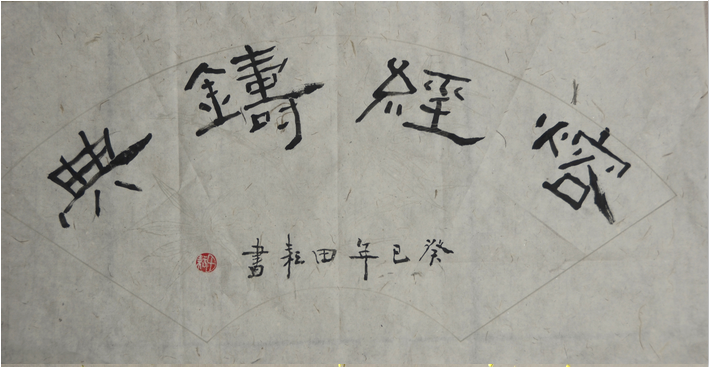 熔經鑄典
癸巳年田耘書